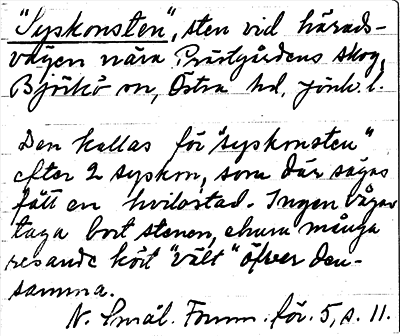 "Syskonsten", sten vid härads-
vägen nära Prästgårdens skog,
Björkö sn, Östra hd, Jönk. l.
Den kallas för "syskonsten"
efter 2 syskon, som där sägas
fått en hvilostad. Ingen vågar
taga bort stenen, ehuru många
resande kört "vält" öfver den-
samma.
N. Smål. Fornm. för. 5, s. 11.